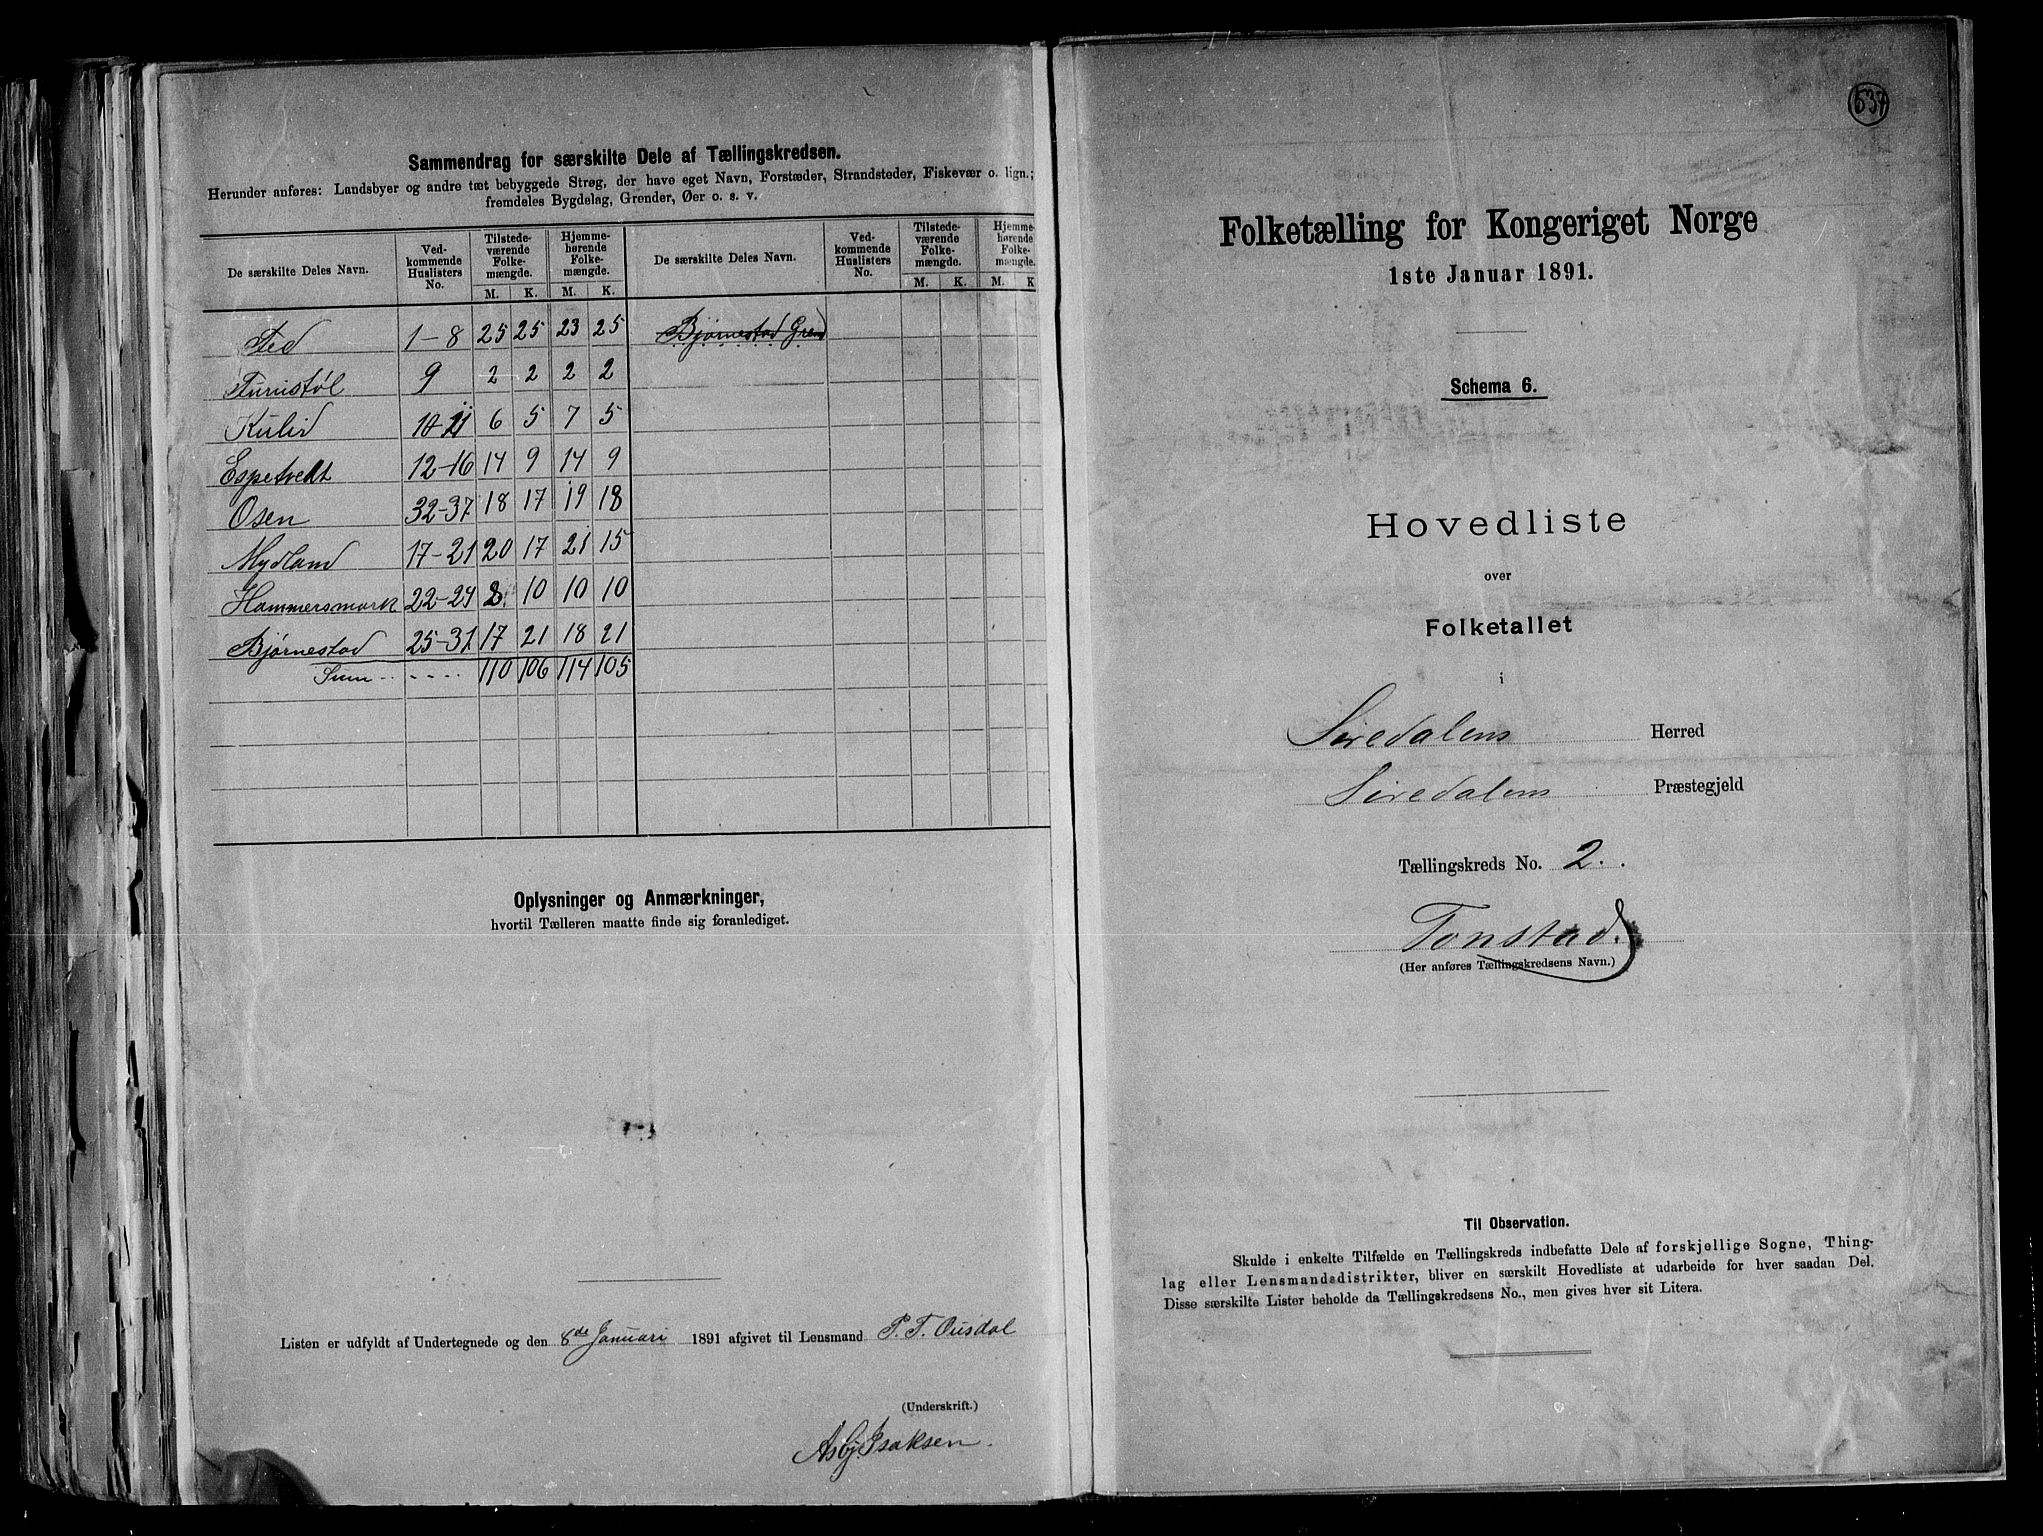 Sammendrag for særskilte Dele af Tællingskredsen.
Herunder anføres: Landsbyer og andre tæt bebyggede Strøg, der have eget Navn, Forstæder, Strandsteder, Fiskevær o. lign.;
fremdeles Bygdelag, Grender, Øer o. s. v.
De særskilte Deles Navn. Vedkommende Huslisters No. Tilstedeværende Folkemængde. M. K. Hjemmehørende Folkemængde. M. K. De særskilte Deles Navn. Vedkommende Huslisters No. Tilstedeværende Folkemængde. M. K. Hjemmehørende Folkemængde. M. K
1-8 25 25 23 25 Bjørnestad Grend
9 2 2 2 2
Kulid 10-11 6 5 7 5
Espetvedt 12-16 14 9 14 9
Osen 32-37 18 17 19 18
Mydland 17-21 20 17 21 15
Hammersmark 22-24 8 10 10 10
Bjørnestad 25-31 17 21 18 21
Sum 110 106 114 105
Oplysninger og Anmærkninger,
hvortil Tælleren maatte finde sig foranlediget.
Listen er udfyldt af Undertegnede og den 8de Januari 1891 afgivet til Lensmand P. T. Ousdal
(Underskrift.)
Asbj. Isaksen.
537
Folketælling for Kongeriget Norge
1ste Januar 1891.
Schema 6.
Hovedliste
over
Folketallet
i
Siredalens Herred
Siredalens Præstegjeld
Tællingskreds No. 2.
Tonstad.
(Her anføres Tællingskredsens Navn.)
Til Observation.
Skulde i enkelte Tilfælde en Tællingskreds indbefatte Dele af forskjellige Sogne, Thing-
lag eller Lensmandsdistrikter, bliver en særskilt Hovedliste at udarbeide for hver saadan Del.
Disse særskilte Lister beholde da Tællingskredsens No., men gives hver sit Litera.